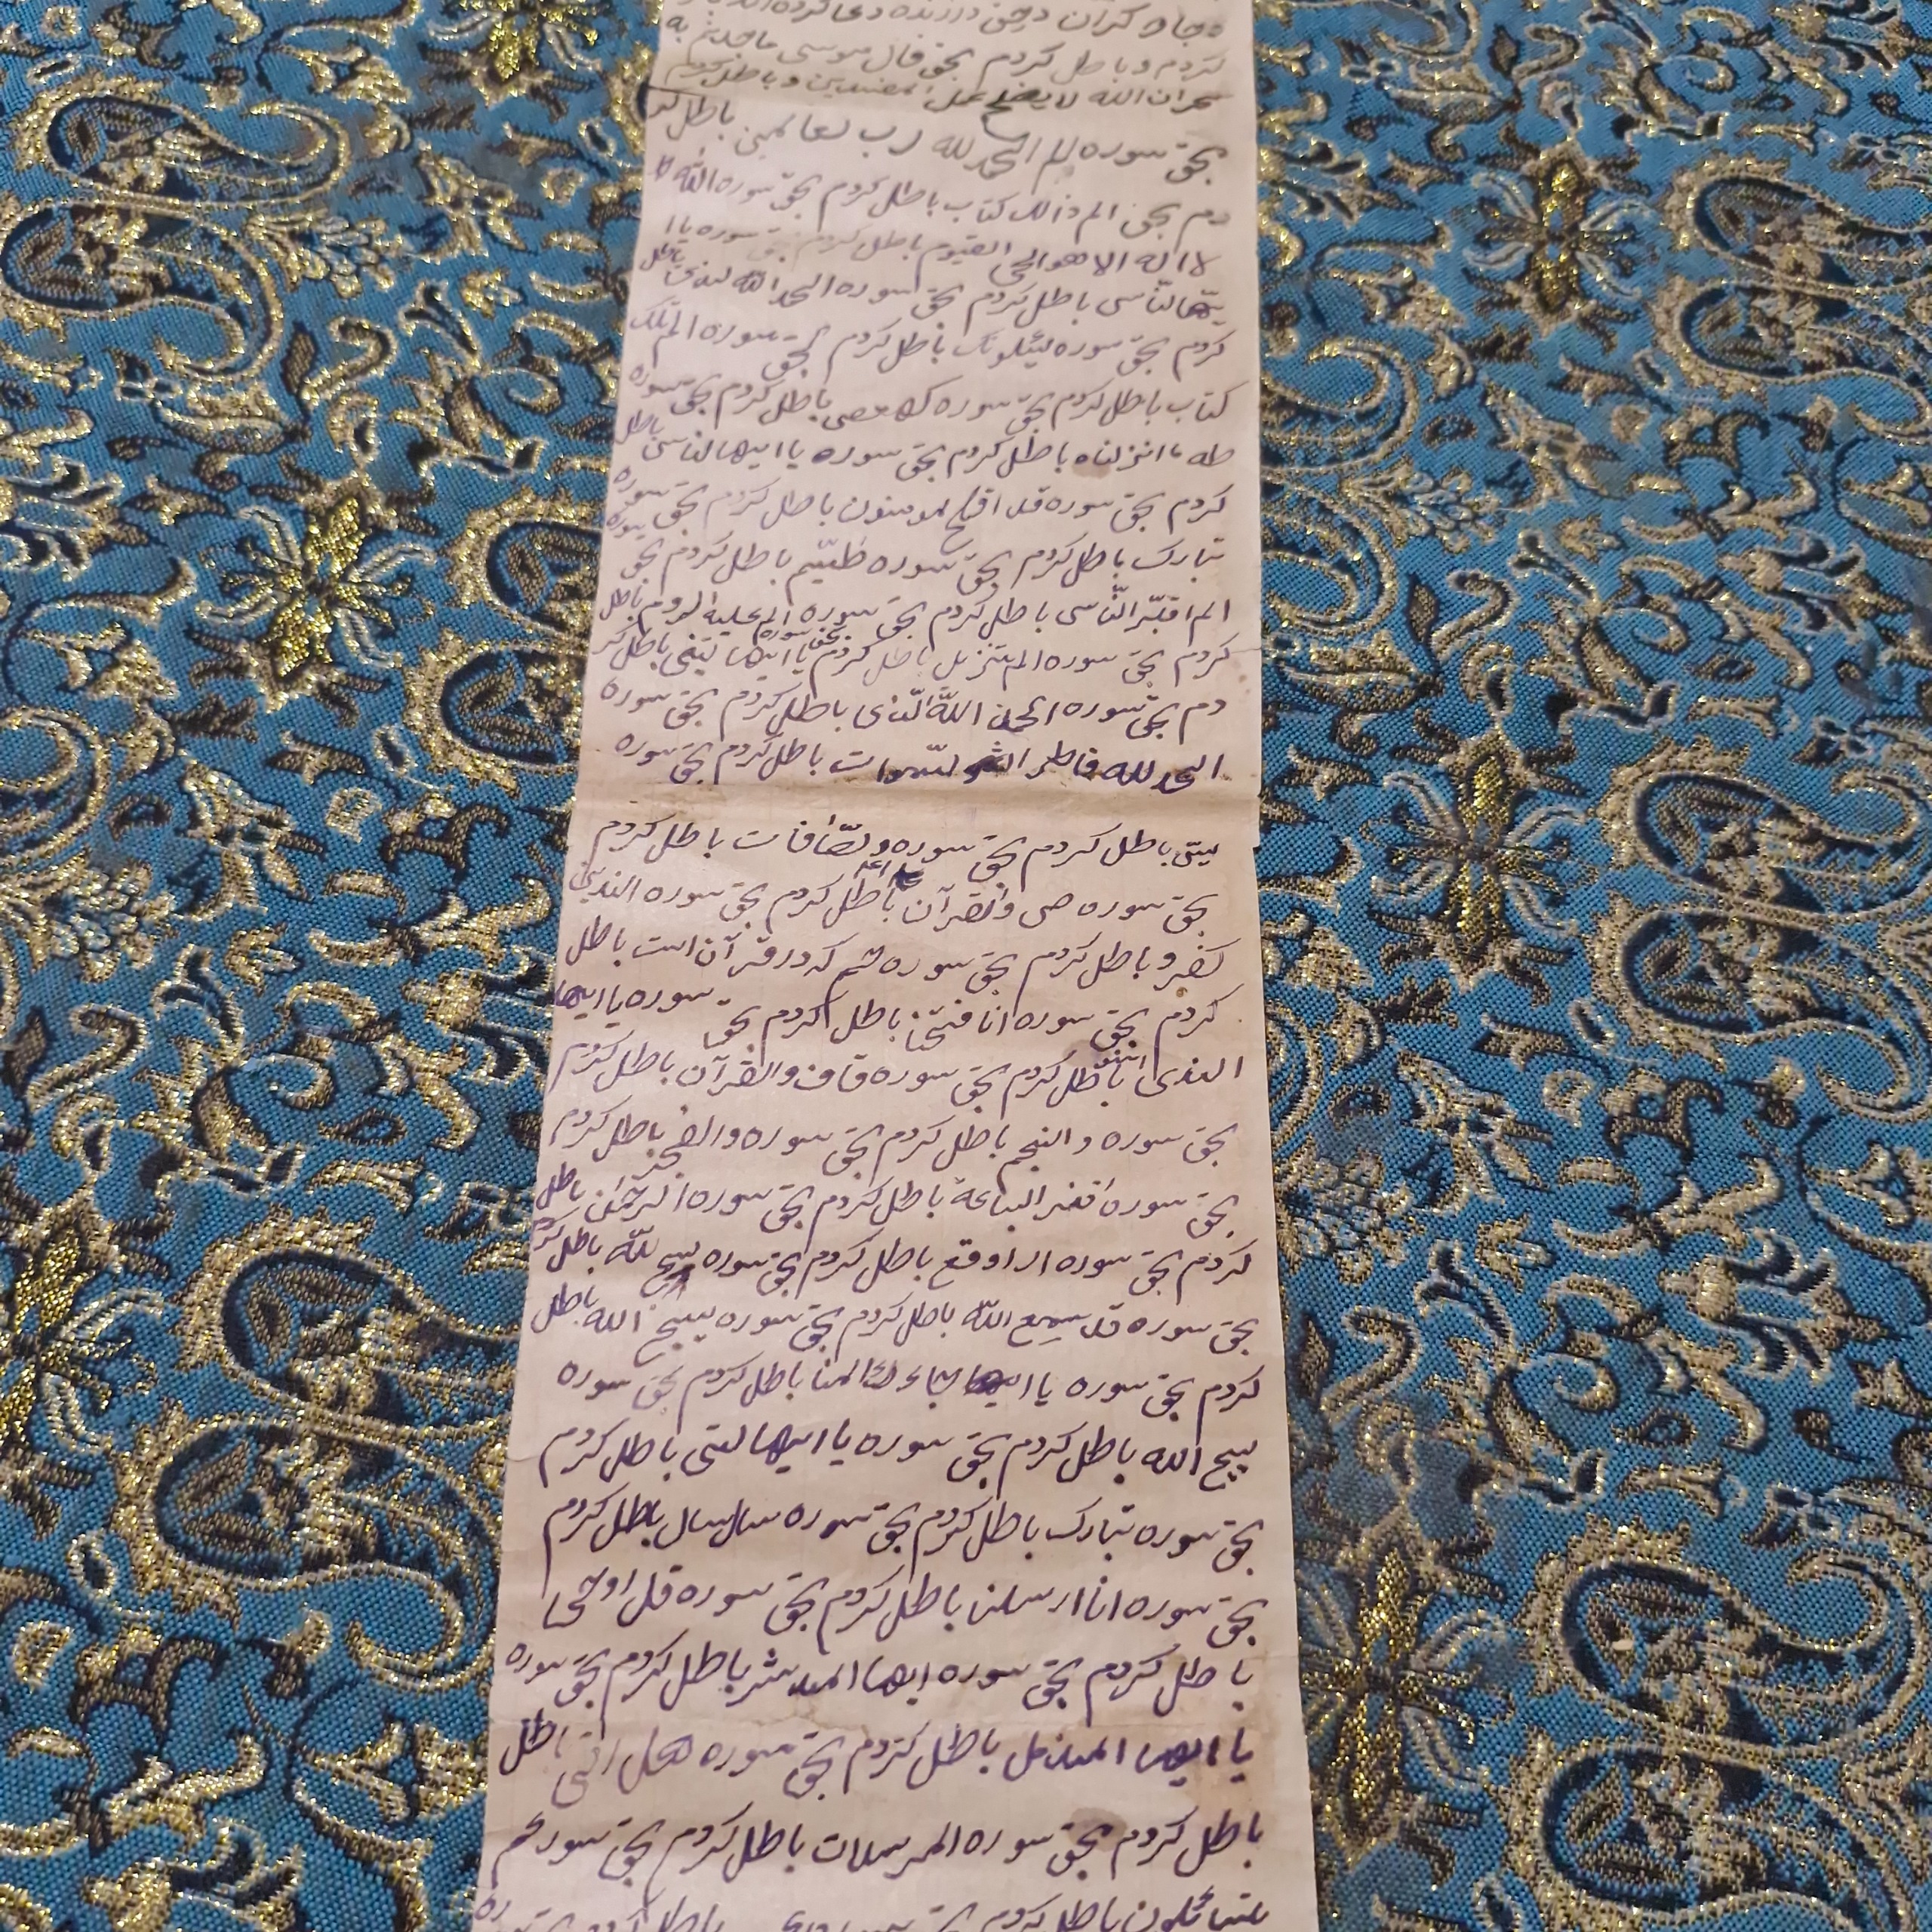 کردم و باطل کردم بحق قال موسی ما جئتم به
سحران الله لا یصلح عمل المفسدین و باطل کردم
بحق سوره الحمد لله رب لعالمین باطل کر
دم بحق الم ذالک کتاب باطل کردم بحق سوره الله
لا اله الا هو الحی القیوم باطل کردم بحق سوره یا ا
یهالنّاس باطل کردم بحق سوره الحمد الله لذی باطل
کردم بحق سوره یسئلونک باطل کردم بحق سوره الم تلک
کتاب باطل کردم بحق سوره کهعص باطل کردم بحق سوره
طه ما انزلناه باطل کردم بحق سوره یا ایهالناس باطل
کردم بحق سوره قد افلح لمومنون باطل کردم بحق سوره
تبارک باطل کردم بحق سوره طسّم باطل کردم بحق سوره
الم النّاس باطل کردم بحق سوره الم الروم باطل
کردم بحق سوره الم تنزیل باطل کردم بحق سوره یا ایها باطل کر
دم بحق سوره الله الّذی باطل کردم بحق سوره
الحمد لله فاطر السّموات باطل کردم بحق سوره
یس باطل کردم بحق سوره والصّافات باطل کردم
بحق سوره ص والقرآن باطل کردم بحق سوره الذین
کفرو باطل کردم بحق سوره حم که در قرآن است باطل
کردم بحق سوره انا فتحنا باطل کردم بحق سوره یا ایها
الذی امنو باطل کردم بحق سوره قاف والقرآن باطل کردم
بحق سوره والنجم باطل کردم بحق سوره والفجر باطل کردم
بحق سوره الساعة باطل کردم بحق سوره الرحمٰن باطل
کردم بحق سوره اذا وقع باطل کردم بحق سوره سبح للّه باطل کردم
بحق سوره قد سمع اللّه باطل کردم بحق سوره یسبح الله باطل
کردم بحق سوره یا ایها باطل کردم بحق سوره
یسبح الله باطل کردم بحق سوره یا ایها لنبی باطل کردم
بحق سوره تبارک باطل کردم بحق سوره سال سال باطل کردم
بحق سوره انا ارسلنا باطل کردم بحق سوره قل اوحی
باطل کردم بحق سوره ایها المدثر باطل کردم بحق سوره
یا ایها المذمل باطل کردم بحق سوره هل اتی باطل
باطل کردم بحق سوره المرسلات باطل کردم بحق سوره عم
یتسائلون باطل کردم بحق